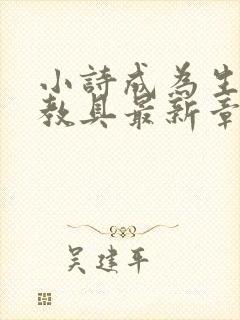 小詩成為生
教具最新章
吴建平